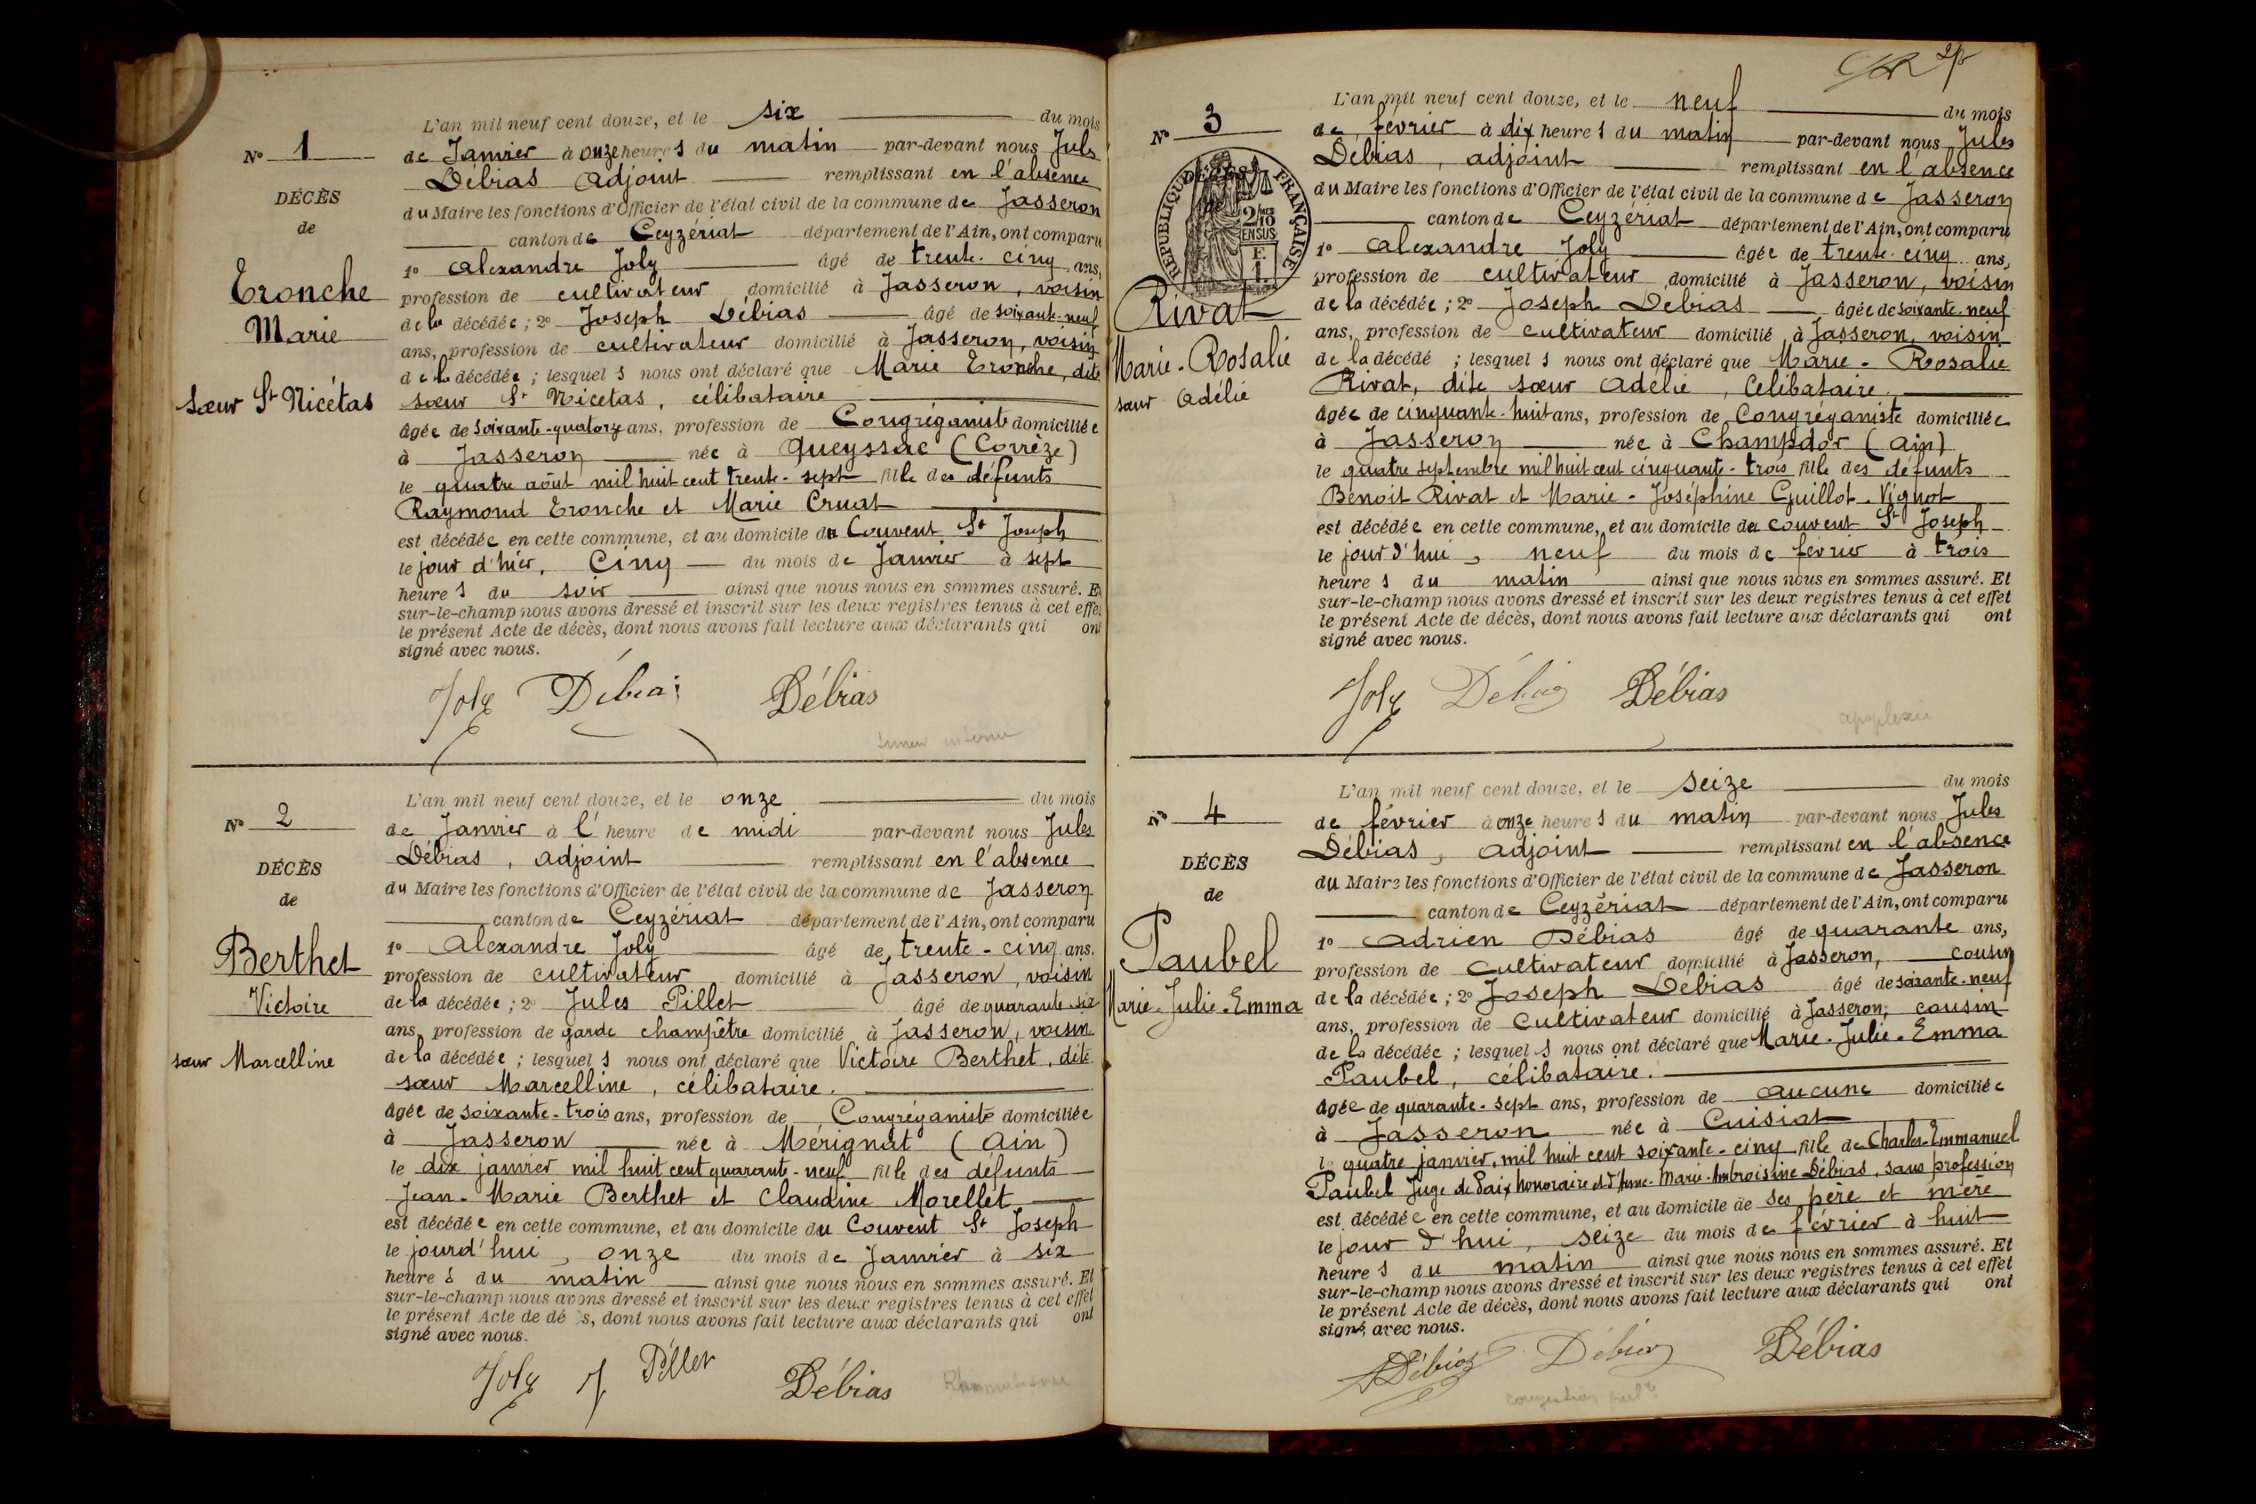 N° 1
DÉCÈS
de
Tronche
Marie
sœur St Nicétas
L'an mil neuf cent douze, et le six du mois
de Janvier à onze heures du matin par-devant nous Jules
Débias adjoint remplissant en l'absence
du Maire les fonctions d'Officier de l'état civil de la commune de Jasseron
canton de Ceyzériat département de l'Ain, ont comparu
1° Alexandre Joly âgé de trente-cinq ans,
profession de cultivateur domicilié à Jasseron, voisin
de la décédée ; 2° Joseph Débias âgé de soixante-neuf
ans, profession de cultivateur domicilié à Jasseron, voisin
de la décédée ; lesquels nous ont déclaré que Marie Tronche, dite
sœur St Nicétas, célibataire
âgée de soixante-quatorze ans, profession de Congréganiste domiciliée
à Jasseron née à Queyssac (Corrèze)
le quatre août mil huit cent trente-sept fille des défunts
Raymond Tronche et Marie Cruat
est décédée en cette commune, et au domicile du Couvent St Joseph
le jour d'hier, Cinq du mois de Janvier à sept
heures du soir ainsi que nous nous en sommes assuré. Et
sur-le-champ nous avons dressé et inscrit sur les deux registres tenus à cet effet
le présent Acte de décès, dont nous avons fait lecture aux déclarants qui ont
signé avec nous.
Joly Débias Débias
N° 2
DÉCÈS
de
Berthet
Victoire
sœur Marcelline
L'an mil neuf cent douze, et le onze du mois
de Janvier à l'heure de midi par-devant nous Jules
Débias, adjoint remplissant en l'absence
du Maire les fonctions d'Officier de l'état civil de la commune de Jasseron
canton de Ceyzériat département de l'Ain, ont comparu
1° Alexandre Joly âgé de trente-cinq ans.
profession de cultivateur domicilié à Jasseron, voisin
de la décédée ; 2° Jules Pillet âgé de quarante-six
ans, profession de garde champêtre domicilié à Jasseron, voisin
de la décédée ; lesquels nous ont déclaré que Victoire Berthet, dite
sœur Marcelline, célibataire.
âgée de soixante-trois ans, profession de Congréganiste domiciliée
à Jasseron née à Mérignat (Ain)
le dix janvier mil huit cent quarante-neuf fille des défunts
Jean-Marie Berthet et Claudine Morellet
est décédée en cette commune, et au domicile du Couvent St Joseph
le jour d'hui, onze du mois de Janvier à six
heures du matin ainsi que nous nous en sommes assuré. Et
sur-le-champ nous avons dressé et inscrit sur les deux registres tenus à cet effet
le présent Acte de décès, dont nous avons fait lecture aux déclarants qui ont
signé avec nous.
Joly J Pillet Débias
Rhumatisme
N° 3
RÉPUBLIQUE FRANÇAISE
2/10 EN SUS
Rivat
Marie-Rosalie
sœur Adélie
L'an mil neuf cent douze, et le neuf du mois
de février à dix heures du matin par-devant nous Jules
Débias, adjoint remplissant en l'absence
du Maire les fonctions d'Officier de l'état civil de la commune de Jasseron
canton de Ceyzériat département de l'Ain, ont comparu
1° Alexandre Joly âgée de trente-cinq ans,
profession de cultivateur domicilié à Jasseron, voisin
de la décédée ; 2° Joseph Debias âgée de soixante-neuf
ans, profession de cultivateur domicilié à Jasseron, voisin
de la décédé ; lesquels nous ont déclaré que Marie-Rosalie
Rivat, dite sœur Adélie, Célibataire.
âgée de cinquante-huit ans, profession de Congréganiste domiciliée
à Jasseron née à Champdor (Ain)
le quatre septembre mil huit cent cinquante-trois fille des défunts
Benoit Rivat et Marie-Joséphine Guillot-Vignot
est décédée en cette commune, et au domicile du couvent St Joseph
le jour d'hui, neuf du mois de février à trois
heures du matin ainsi que nous nous en sommes assuré. Et
sur-le-champ nous avons dressé et inscrit sur les deux registres tenus à cet effet
le présent Acte de décès, dont nous avons fait lecture aux déclarants qui ont
signé avec nous.
Joly Débias Débias
apoplexie
N° 4
DÉCÈS
de
Paubel
Marie-Julie-Emma
L'an mil neuf cent douze, et le seize du mois
de février à onze heures du matin par-devant nous Jules
Débias, adjoint remplissant en l'absence
du Maire les fonctions d'Officier de l'état civil de la commune de Jasseron
canton de Ceyzériat département de l'Ain, ont comparu
1° Adrien Débias âgé de quarante ans,
profession de cultivateur domicilié à Jasseron, cousin
de la décédée ; 2° Joseph Debias âgé de soixante-neuf
ans, profession de cultivateur domicilié à Jasseron, cousin
de la décédée ; lesquels nous ont déclaré que Marie-Julie-Emma
Paubel, célibataire.
âgée de quarante-sept ans, profession de aucune domiciliée
à Jasseron née à Cuisiat
le quatre janvier, mil huit cent soixante-cinq fille de Charles-Emmanuel
Paubel Juge de Paix honoraire et d'Anne-Marie-Ambroisine Débias, sans profession
est décédée en cette commune, et au domicile de ses père et mère
le jour d'hui, seize du mois de février à huit
heures du matin ainsi que nous nous en sommes assuré. Et
sur-le-champ nous avons dressé et inscrit sur les deux registres tenus à cet effet
le présent Acte de décès, dont nous avons fait lecture aux déclarants qui ont
signé avec nous.
ADébias Débias Débias
congestion pulre